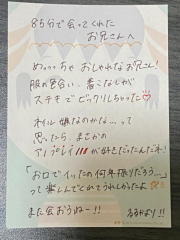 85分で会ってくれた
お兄さんへ
めっっちゃ おしゃれなお兄さん!
服の色合い、着こなしが
ステキで ビックリしちゃった♡
ネイル 嫌なのかな…って
思ったら まさかの
プレイ///が好きだったんだネ!
「お口でイッたの何年振りだろう…」
って楽しんでくれてうれしかったよ
また会おうねー!!
より!!